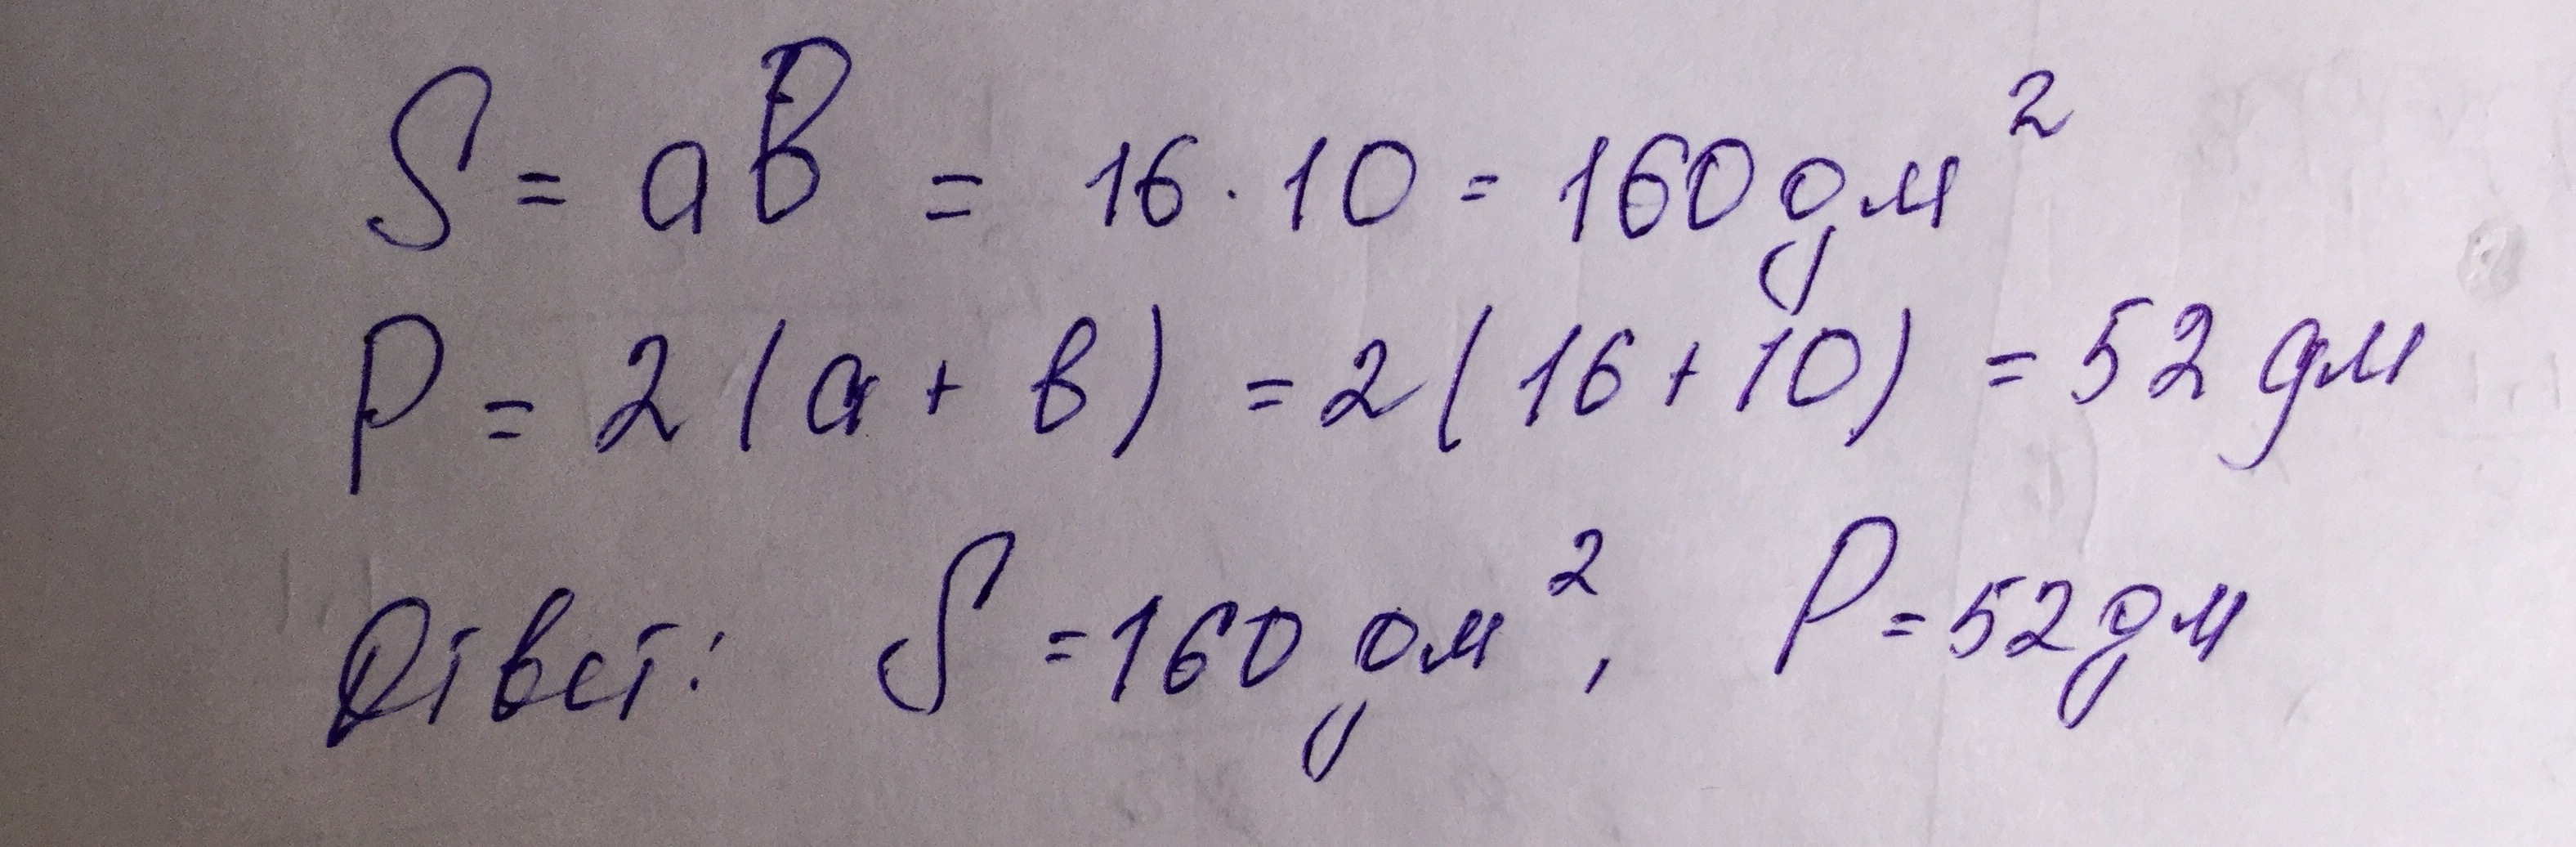 S = ab = 16 · 10 = 160 дм²
P = 2 (a + b) = 2 (16 + 10) = 52 дм
Ответ: S = 160 дм², P = 52 дм